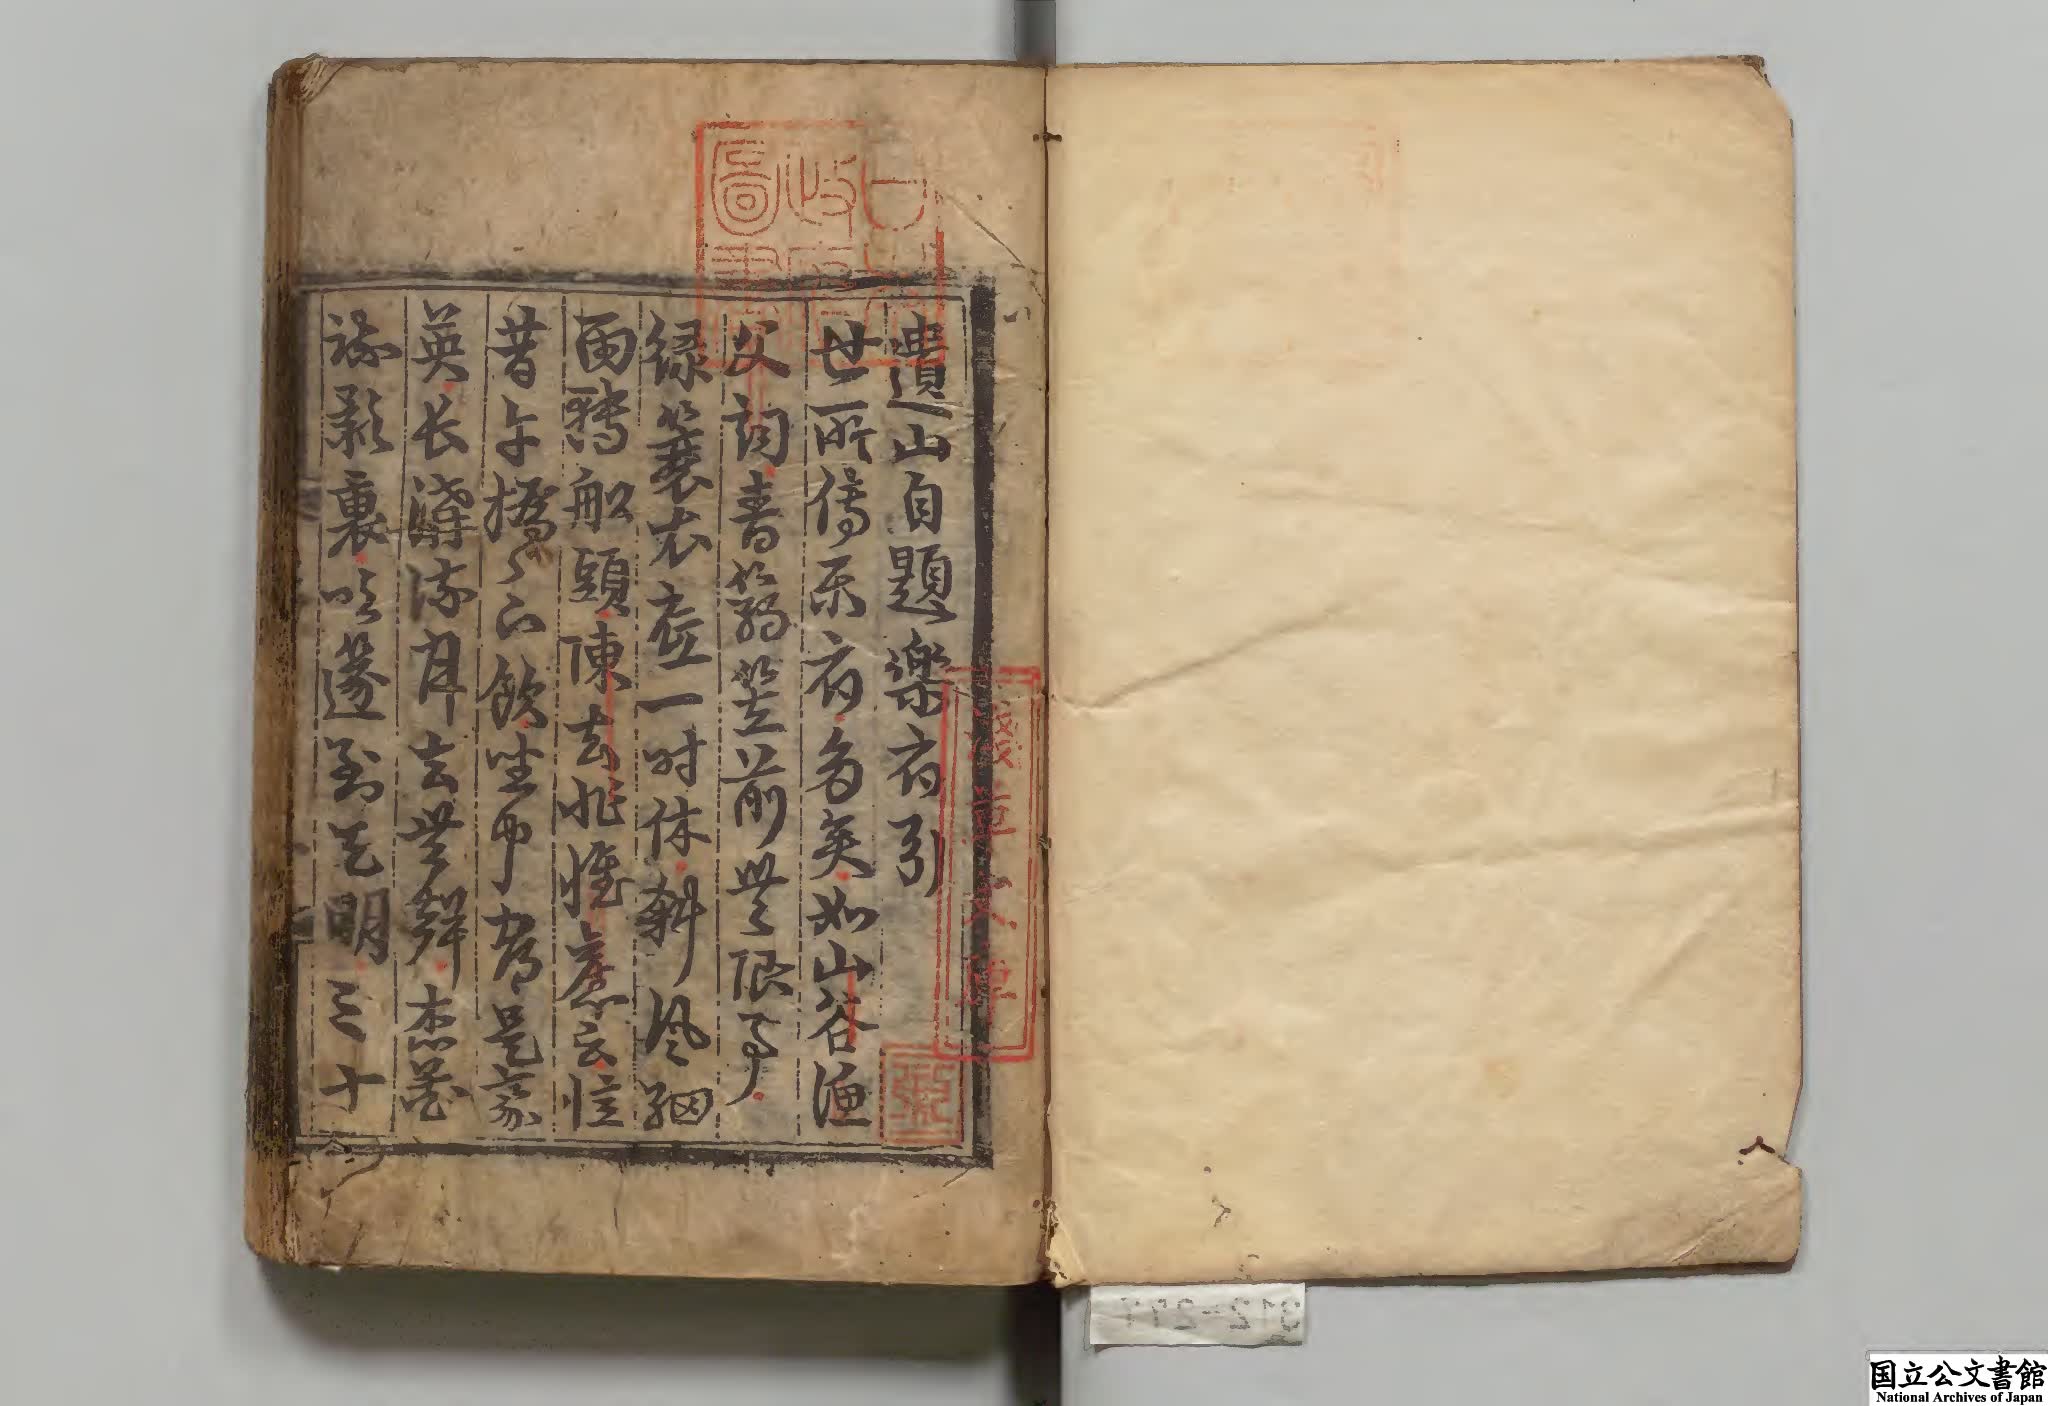 遺山自題樂府引
世所傳樂府多矣如山谷漁
父詞青蒻笠前無限事
綠簑衣底一時休斜風細
雨轉船頭陳去非懷舊云憶
昔午橋〻下飲坐中都是豪
英長溝流月去無聲杏花
疎影裏吹篴到天明三十
淺草文庫
圖書
国立公文書館
National Archives of Japan